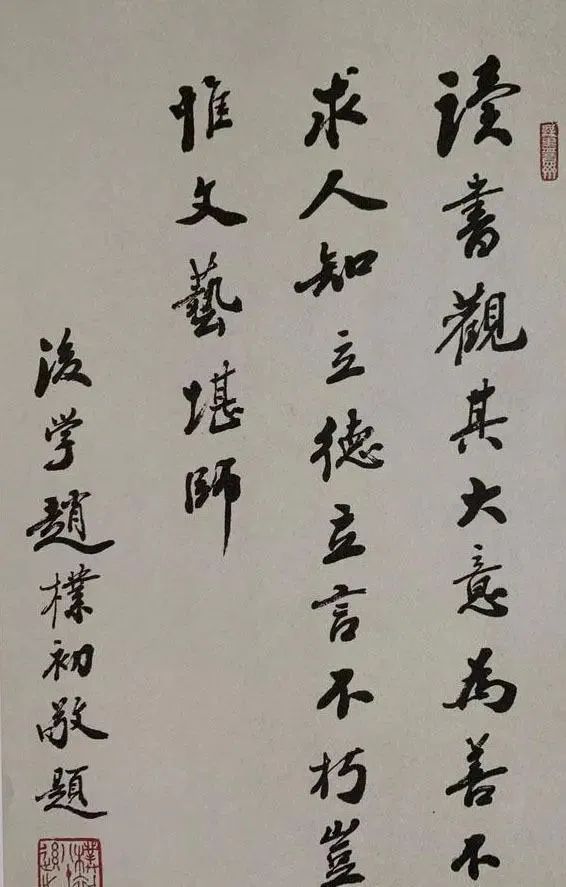 读書觀其大意為善不
求人知立德立言不朽豈
惟文藝堪師
後学趙樸初敬題